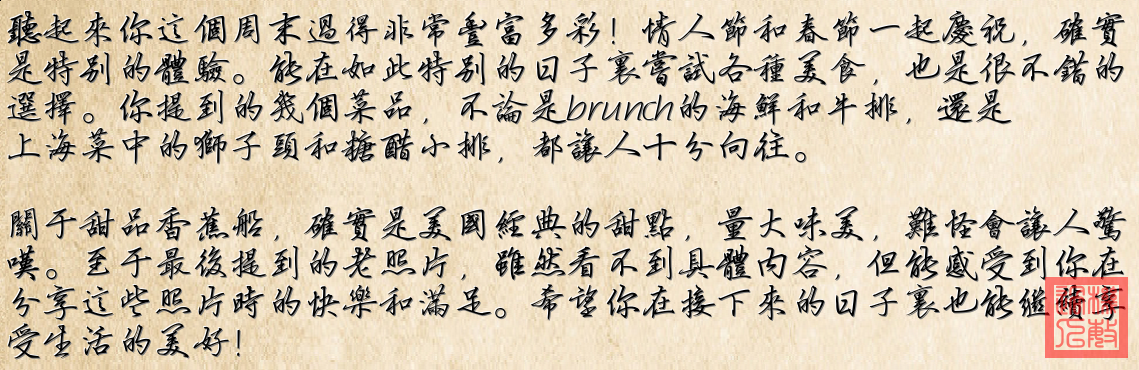 聽起來你這個周末過得非常豐富多彩！情人節和春節一起慶祝，確實
是特别的體驗。能在如此特别的日子裏嘗試各種美食，也是很不錯的
選擇。你提到的幾個菜品，不論是brunch的海鮮和牛排，還是
上海菜中的獅子頭和糖醋小排，都讓人十分向往。
關于甜品香蕉船，確實是美國經典的甜點，量大味美，難怪會讓人驚
嘆。至于最後提到的老照片，雖然看不到具體内容，但能感受到你在
分享這些照片時的快樂和滿足。希望你在接下來的日子裏也能繼續享
受生活的美好！